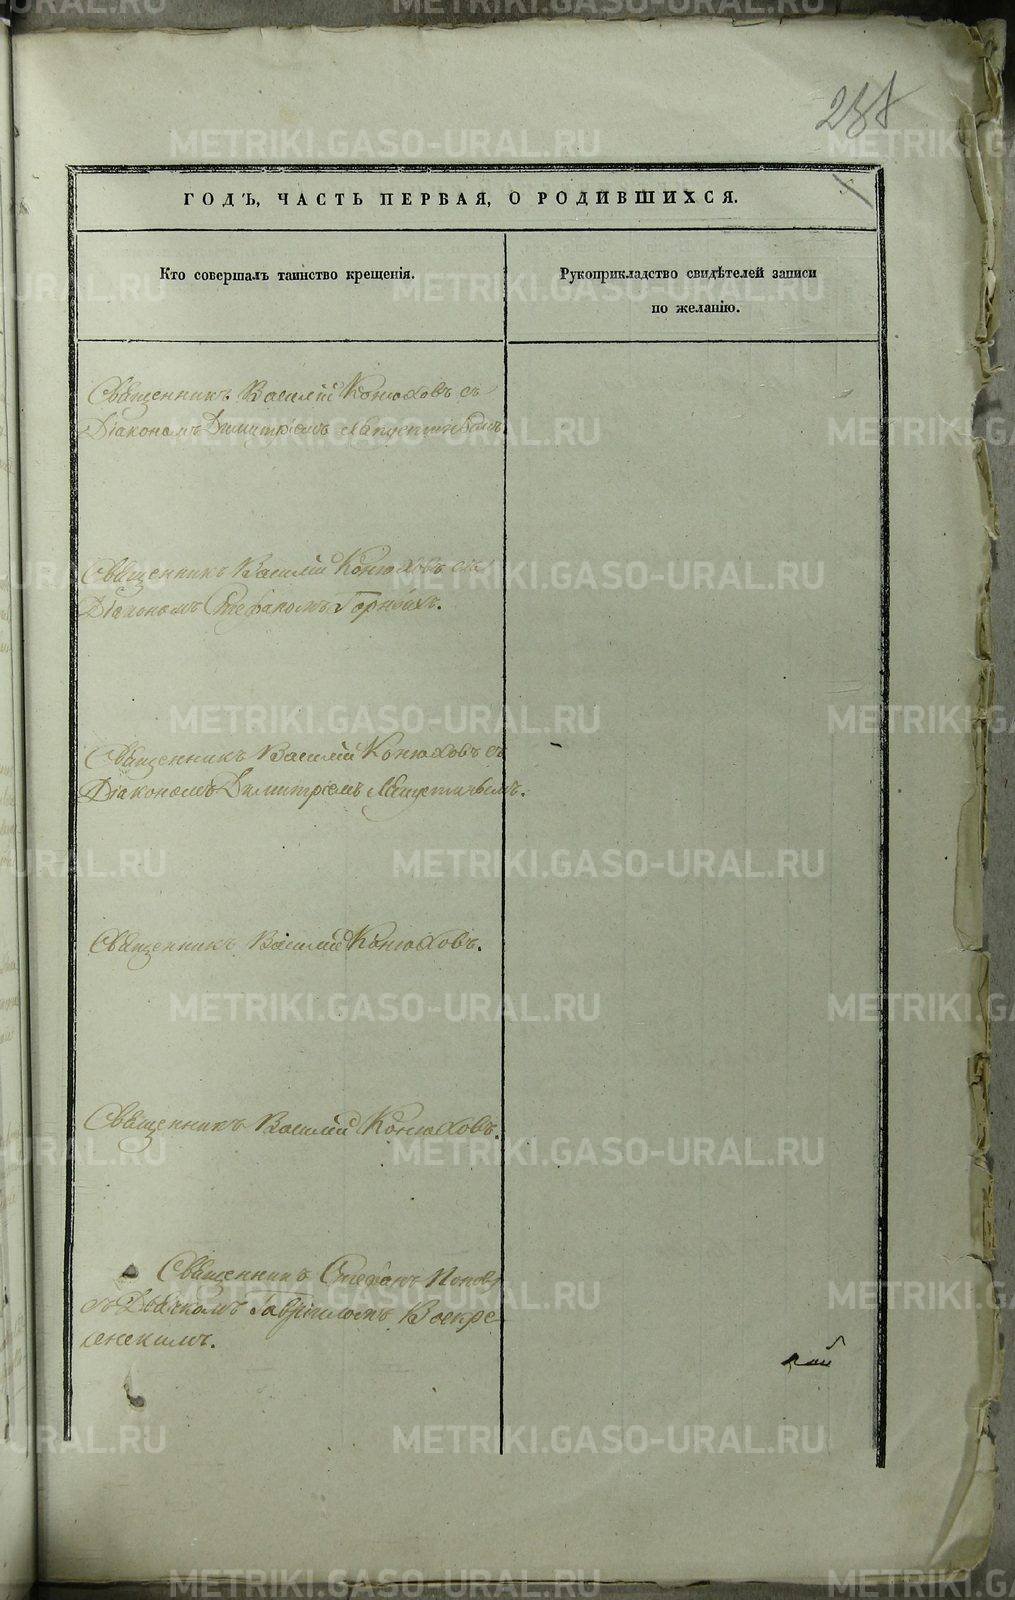 288
ГОДЪ, ЧАСТЬ ПЕРВАЯ, О РОДИВШИХСЯ.
Кто совершалъ таинство крещенія.
Рукоприкладство свидѣтелей записи
по желанію.
Священникъ Василій Конюховъ съ
Діакономъ Димитріемъ
Священникъ Василій Конюховъ съ
Діакономъ Стефаномъ Горныхъ.
Священникъ Василій Конюховъ съ
Діакономъ Димитріемъ
Священникъ Василій Конюховъ.
Священникъ Василій Конюховъ.
Священникъ Стефанъ Поповъ
съ Дьячкомъ Гавріиломъ Воскре
сенскимъ.
METRIKI.GASO-URAL.RU